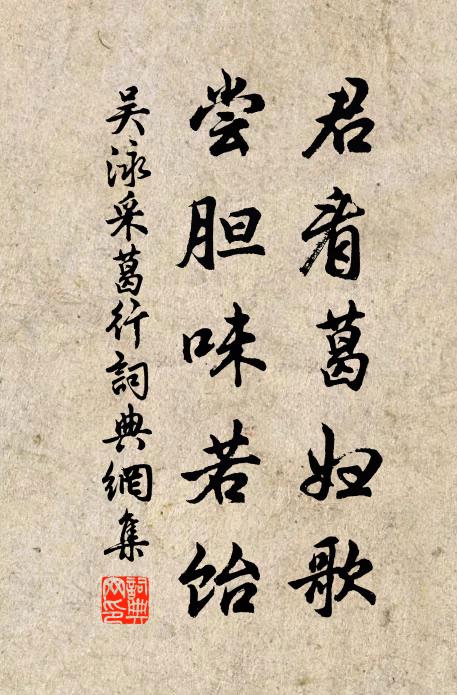 君看葛妇歌
尝胆味若饴
吴泳采葛行詞典網集
詞典網印